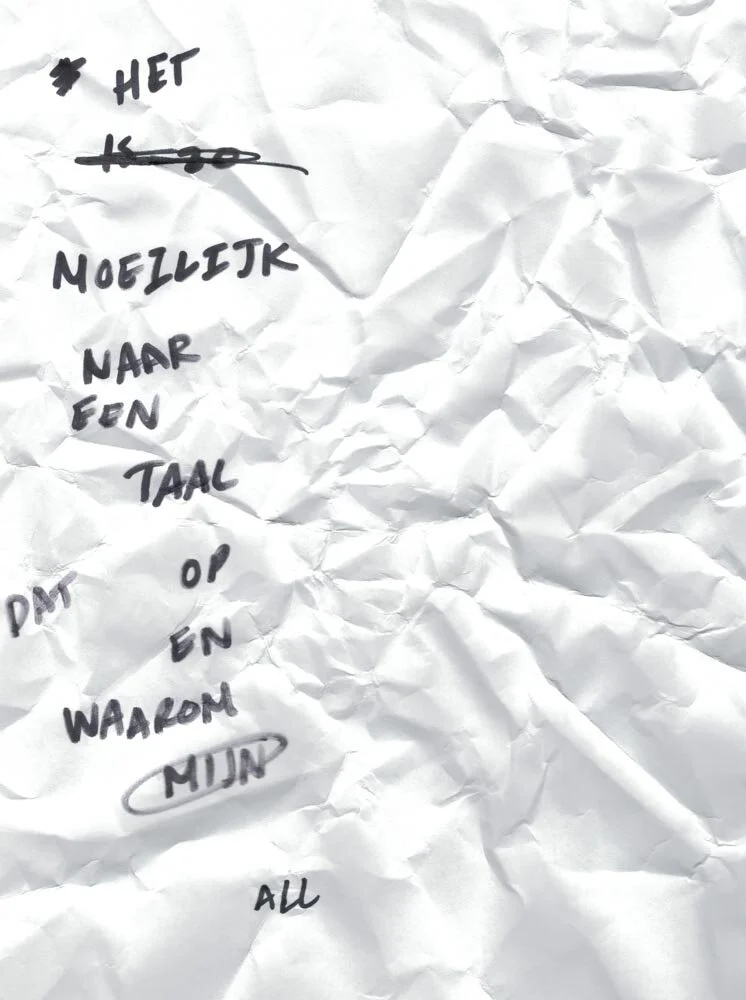 * HET
MOEILIJK
NAAR
EEN
TAAL
OP
DAT
EN
WAAROM
MIJN
ALL